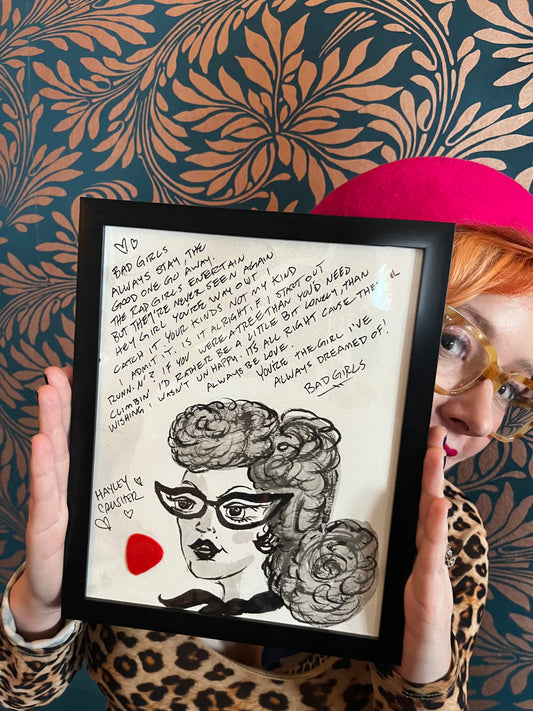 BAD GIRLS
ALWAYS STAY, THE
GOOD ONE GO AWAY.
THE RAD GIRLS ENTERTAIN
BUT THEY'RE NEVER SEEN AGAIN
HEY GIRL YOU'RE WAY OUT!
CATCH IT. YOUR KINDS NOT MY KIND
I ADMIT IT. IS IT ALRIGHT, IF I START OUT
RUNN.N'? IF YOU WERE A TREE THAN YOU'D NEED
CLIMBIN' I'D RATHER BE A LITTLE BIT LONELY, THAN
WISHING I WASN'T UNHAPPY. IT'S ALL RIGHT CAUSE THE
ALWAYS BE LOVE.
YOU'RE THE GIRL I'VE
ALWAYS DREAMED OF!
BAD GIRLS
HAYLEY
CRUSHER